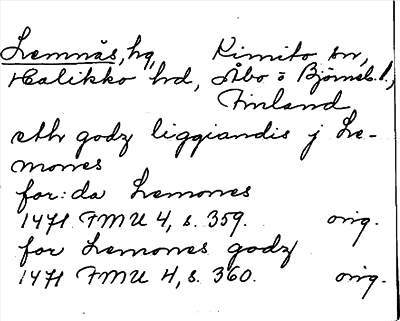 Lemnäs, hg, Kimito sn,
Halikko hd, Åbo o Björneb. l,
Finland
eth godz liggiandis j Le-
mones
for: da Lemones
1471 FMU 4, s. 359. orig.
for Lemones godz
1471 FMU 4, s. 360. orig.